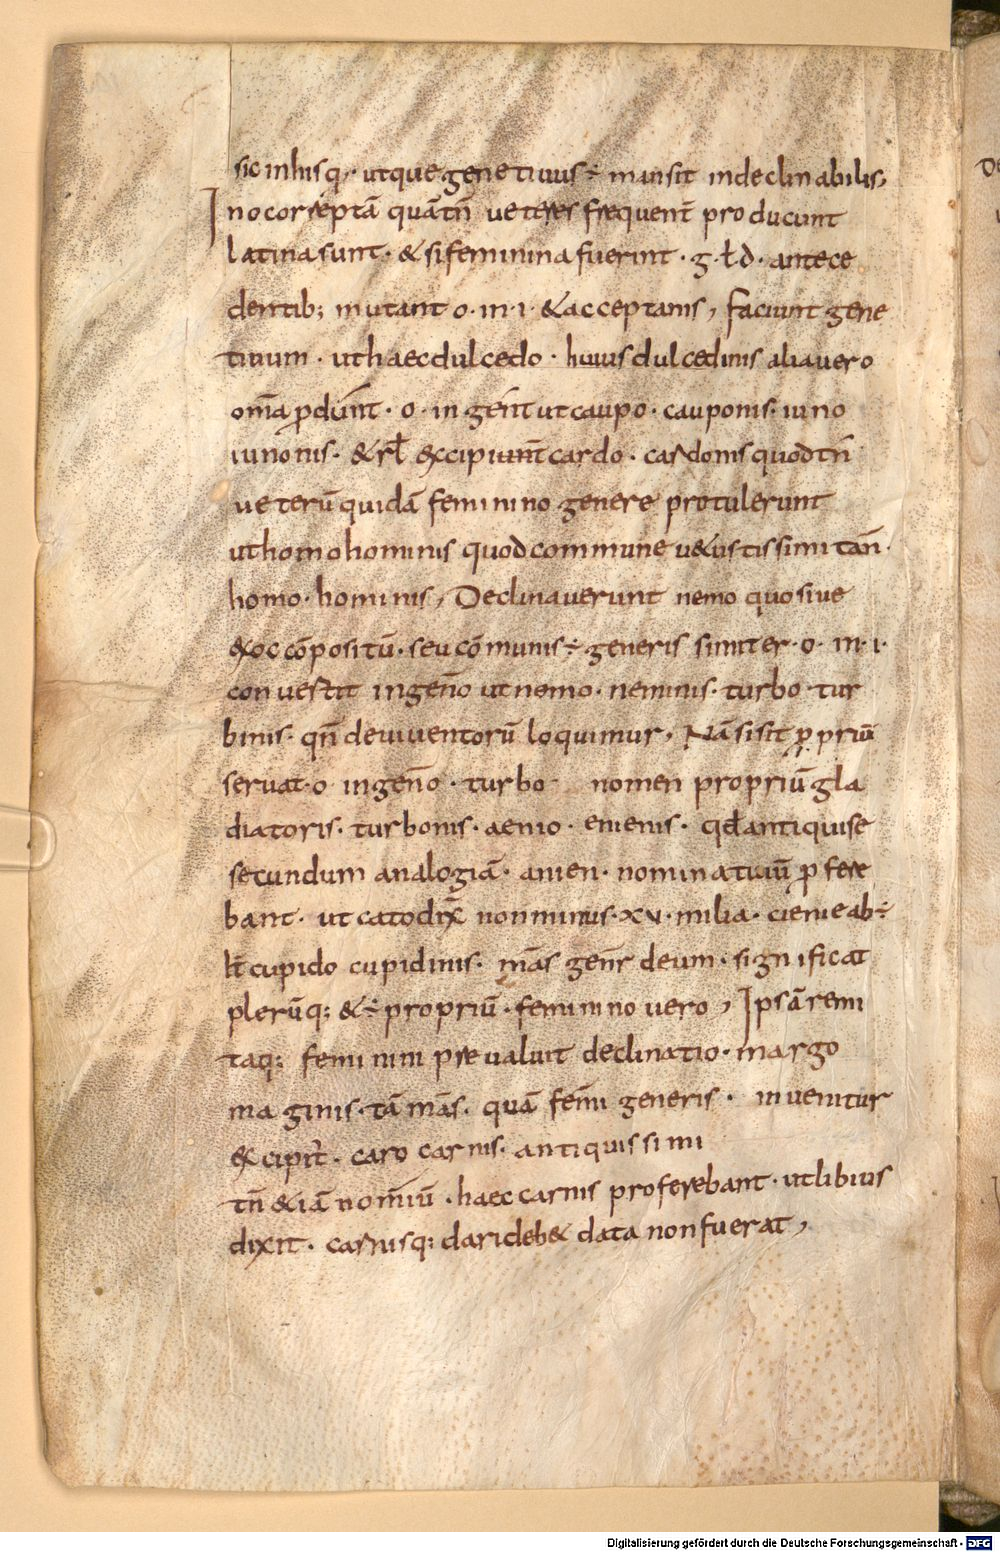 sic in his q; · ut que genetiuus ÷ mansit indeclinabilis,
In o correptā quātn̄ ueteres frequent̄ producunt
latina sunt · & si feminina fuerint · g · ł d · antece
dentib; mutant o · in · i · & accepta nis, faciunt gene
tiuum · ut haec dulcedo · huius dulcedinis alia uero
om̄a ꝓdūnt · o · in gen̄t ut caupo · cauponis · iuno
iunonis · & rł excipiunt̄ cardo · cardonis quod tn̄
ueterū quidā feminino genere protulerunt
ut homo hominis quod commune u&ustissimi tān ·
homo · hominis, Declinauerunt nemo quo siue
& oc cōpositū · seu cōmunis ÷ generis simiter · o · in · i ·
conuertit in gen̄o ut nemo · neminis · turbo · tur
binis · qn̄ de uiuentorū loquimur, Nā si sit ꝓprium̄
seruat · o · in gen̄o · turbo · nomen propriū gla
diatoris · turbonis · aenio · enienis · qđ antiqui se
secundum analogiā · anien · nominatiuū ꝓfere
bant · ut cato dix̄ non minus · xv · milia · cienie ab ÷
ł cupido cupidinis · mās gen̄r deum · significat
plerūq; & ÷ propriū · feminino uero, Ipsā remi
taq; feminini preualuit declinatio · margo
maginis · tā mās · quā fem̄i generis · inuenitur
excipit̄ · caro carnis · antiquissimi
tn̄ & iā nom̄iū · haec carnis proferebant · ut libius
dixit · carnisq; dari deb& data non fuerat,
De
Digitalisierung gefördert durch die Deutsche Forschungsgemeinschaft - DFG